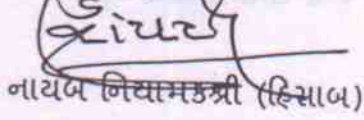 નાયબ નિયામકશ્રી (હિસાબ)